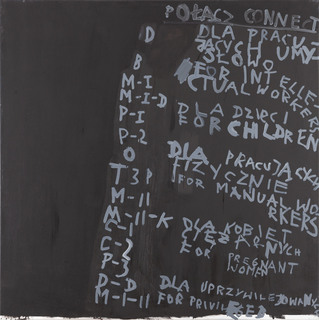 POŁĄCZ CONNECT
D DLA PRACUJ
ĄCYCH UMY
B SŁOWO
M-I FOR INTELLE-
M-I-D CTUAL WORKERS
P-I DLA DZIECI
P-2 FOR CHILDREN
O DLA PRACUJĄCYCH
T 3 P FIZYCZNIE
M-II FOR MANUAL WO
M-II-K RKERS
C-I DLA KOBIET
C-3 CIĘŻARNYCH
P-3 FOR PREGNANT
WOMEN
D-D DLA UPRZYWILEJOWANYC
M-I-II FOR PRIVILEGED